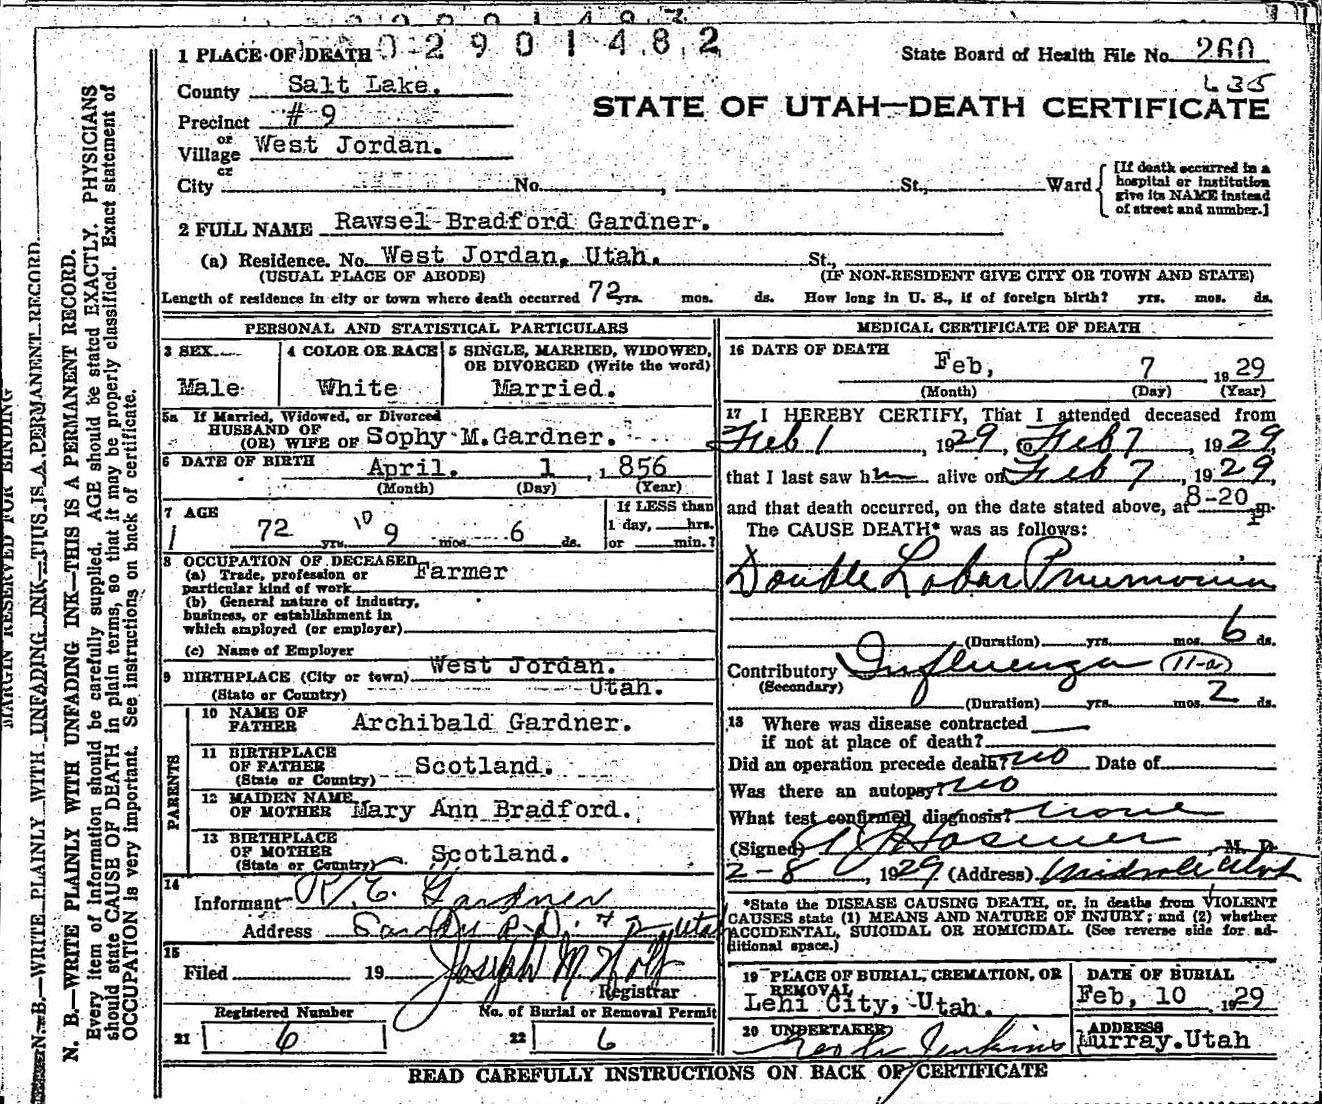 02901482
1 PLACE OF DEATH
State Board of Health File No. 260
County Salt Lake.
635
Precinct # 9
STATE OF UTAH—DEATH CERTIFICATE
or
Village West Jordan.
or
City No. , St., Ward
[If death occurred in a
hospital or institution
give its NAME instead
of street and number.]
2 FULL NAME Rawsel Bradford Gardner.
(a) Residence. No. West Jordan, Utah. St.,
(USUAL PLACE OF ABODE) (IF NON-RESIDENT GIVE CITY OR TOWN AND STATE)
Length of residence in city or town where death occurred 72 yrs. mos. ds. How long in U. S., if of foreign birth? yrs. mos. ds.
PERSONAL AND STATISTICAL PARTICULARS
3 SEX
Male
4 COLOR OR RACE
White
5 SINGLE, MARRIED, WIDOWED,
OR DIVORCED (Write the word)
Married.
5a If Married, Widowed, or Divorced
HUSBAND OF
(OR) WIFE OF Sophy M. Gardner.
6 DATE OF BIRTH April. 1 , 856
(Month) (Day) (Year)
7 AGE
72 yrs. 10 9 mos. 6 ds.
If LESS than
1 day, hrs.
or min.?
8 OCCUPATION OF DECEASED
(a) Trade, profession or
particular kind of work Farmer
(b) General nature of industry,
business, or establishment in
which employed (or employer)
(c) Name of Employer
9 BIRTHPLACE (City or town) West Jordan.
(State or Country) Utah.
PARENTS
10 NAME OF
FATHER Archibald Gardner.
11 BIRTHPLACE
OF FATHER
(State or Country) Scotland.
12 MAIDEN NAME
OF MOTHER Mary Ann Bradford.
13 BIRTHPLACE
OF MOTHER
(State or Country) Scotland.
14
Informant R. E. Gardner
Address Sandy R.D. # 2 Utah
15
Filed 19 Joseph M Holt
Registrar
Registered Number
21 6
No. of Burial or Removal Permit
22 6
MEDICAL CERTIFICATE OF DEATH
16 DATE OF DEATH
Feb, 7 , 1929
(Month) (Day) (Year)
17 I HEREBY CERTIFY, That I attended deceased from
Feb 1 , 1929, to Feb 7 , 1929,
that I last saw him alive on Feb 7 , 1929,
and that death occurred, on the date stated above, at 8-20 P m.
The CAUSE DEATH* was as follows:
Double Lobar Pneumonia
(Duration) yrs. mos. 6 ds.
Contributory Influenza 11-a
(Secondary)
(Duration) yrs. mos. 2 ds.
18 Where was disease contracted
if not at place of death?
Did an operation precede death? no Date of
Was there an autopsy? no
What test confirmed diagnosis? none
(Signed) M. D.
2-8 , 1929 (Address) Midvale Utah
*State the DISEASE CAUSING DEATH, or, in deaths from VIOLENT
CAUSES state (1) MEANS AND NATURE OF INJURY; and (2) whether
ACCIDENTAL, SUICIDAL OR HOMICIDAL. (See reverse side for ad-
ditional space.)
19 PLACE OF BURIAL, CREMATION, OR
REMOVAL
Lehi City, Utah.
DATE OF BURIAL
Feb, 10 1929
20 UNDERTAKER
Jenkins
ADDRESS
Murray. Utah
READ CAREFULLY INSTRUCTIONS ON BACK OF CERTIFICATE
MARGIN RESERVED FOR BINDING
N. B.—WRITE PLAINLY WITH UNFADING INK—THIS IS A PERMANENT RECORD.
N. B.—WRITE PLAINLY WITH UNFADING INK—THIS IS A PERMANENT RECORD.
Every item of information should be carefully supplied. AGE should be stated EXACTLY. PHYSICIANS
should state CAUSE OF DEATH in plain terms, so that it may be properly classified. Exact statement of
OCCUPATION is very important. See instructions on back of certificate.